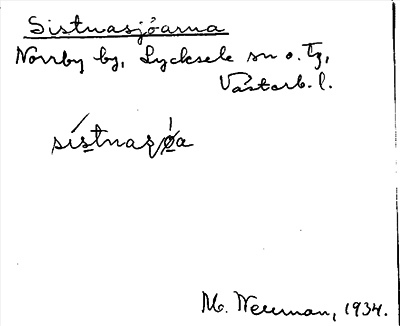 Sistnasjöarna
Norrby by, Lycksele sn o. Tg,
Västerb. l.
sístnasjøa
M. Wenman, 1934.